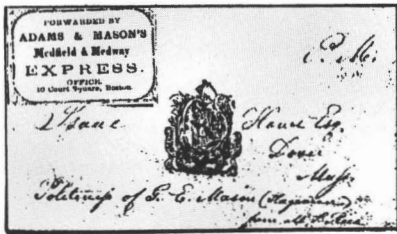 FORWARDED BY
ADAMS & MASON'S
Medfield & Medway
EXPRESS.
OFFICE,
10 Court Square, Boston
P. M.
Isaac Howe Esq.
Dover
Mass.
Politeness of G. E. Mason
from